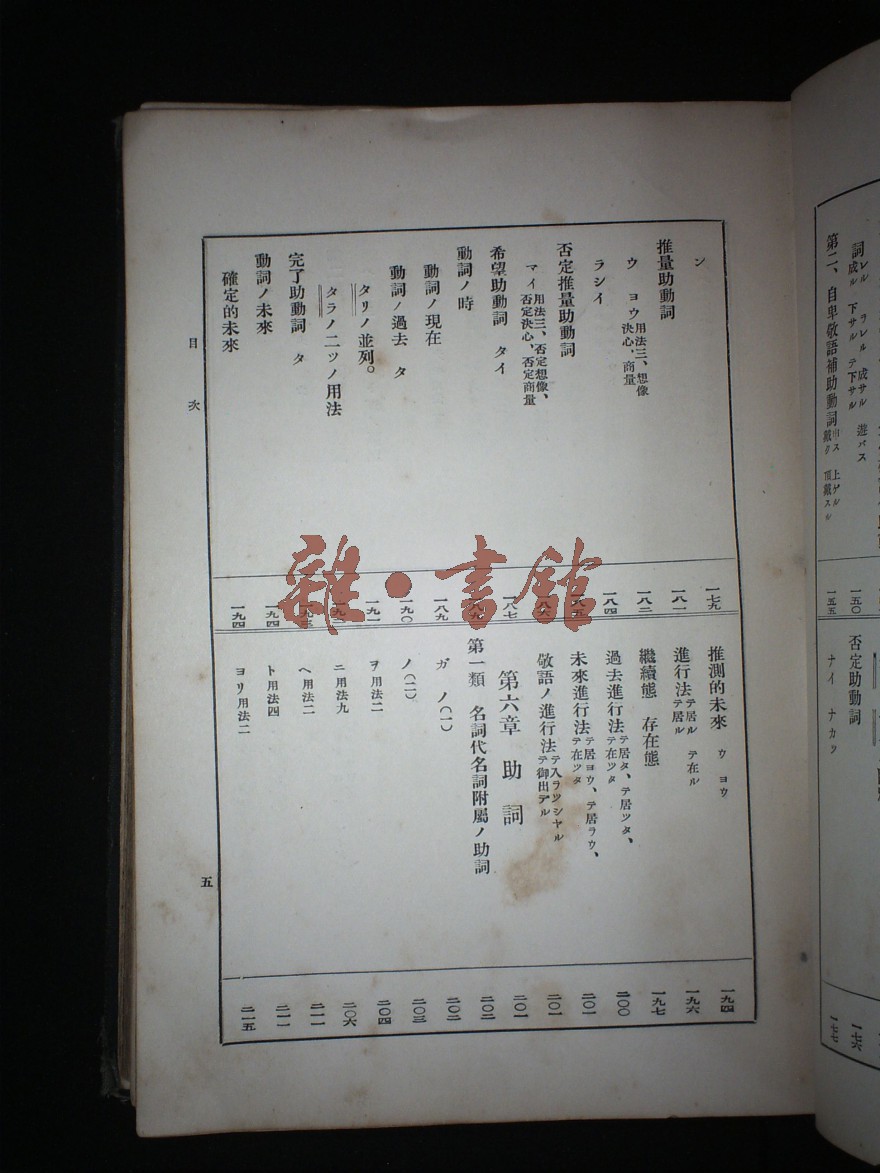 詞
レル ラレル 成サル 遊バス
成ル 下サル テ下サル
第二、自卑敬語補助動詞
申ス 上ゲル
戴ク 頂戴スル
一五〇
一五五
否定助動詞
ナイ ナカツ
一七六
一七七
ン
一七九
推量助動詞
一八一
ウ ヨウ 用法三、想像
決心、商量
一八二
ラシイ
一八四
否定推量助動詞
一八五
マイ 用法三、否定想像、
否定決心、否定商量
希望助動詞 タイ
一八七
動詞ノ時
動詞ノ現在
一八九
動詞ノ過去 タ
一九〇
タリノ並列。
一九一
タラノ二ツノ用法
完了助動詞 タ
動詞ノ未來
一九四
確定的未來
一九四
推測的未來 ウ ヨウ
一九四
進行法 テ居ル テ在ル
テ居ル
一九六
繼續態 存在態
一九七
過去進行法 テ居タ、テ居ツタ、
テ在ツタ
二〇〇
未來進行法 テ居ヨウ、テ居ラウ、
テ在ツタ
二〇一
敬語ノ進行法 テ入ラツシヤル
テ御出デル
二〇一
第六章 助詞
二〇一
第一類 名詞代名詞附屬ノ助詞
二〇二
ガ ノ(一)
二〇二
ノ(二)
二〇三
ヲ用法二
二〇四
ニ用法九
二〇六
ヘ用法二
二一一
ト用法四
二一一
ヨリ用法二
二一五
目次
五
雜·書館